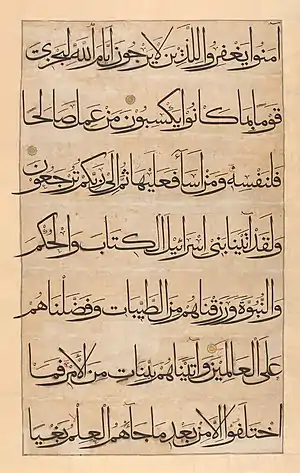 آمنوا يغفروا للذين لا يرجون أيام الله ليجزى
قوما بما كانوا يكسبون من عمل صالحا
فلنفسه ومن اسآء فعليها ثم الى ربكم ترجعون
ولقد آتينا بنى اسرائيل الكتاب والحكم
والنبوة ورزقناهم من الطيبات وفضلناهم
على العالمين وآتيناهم بينات من الامر فما
اختلفوا الا من بعد ما جآءهم العلم بغيا